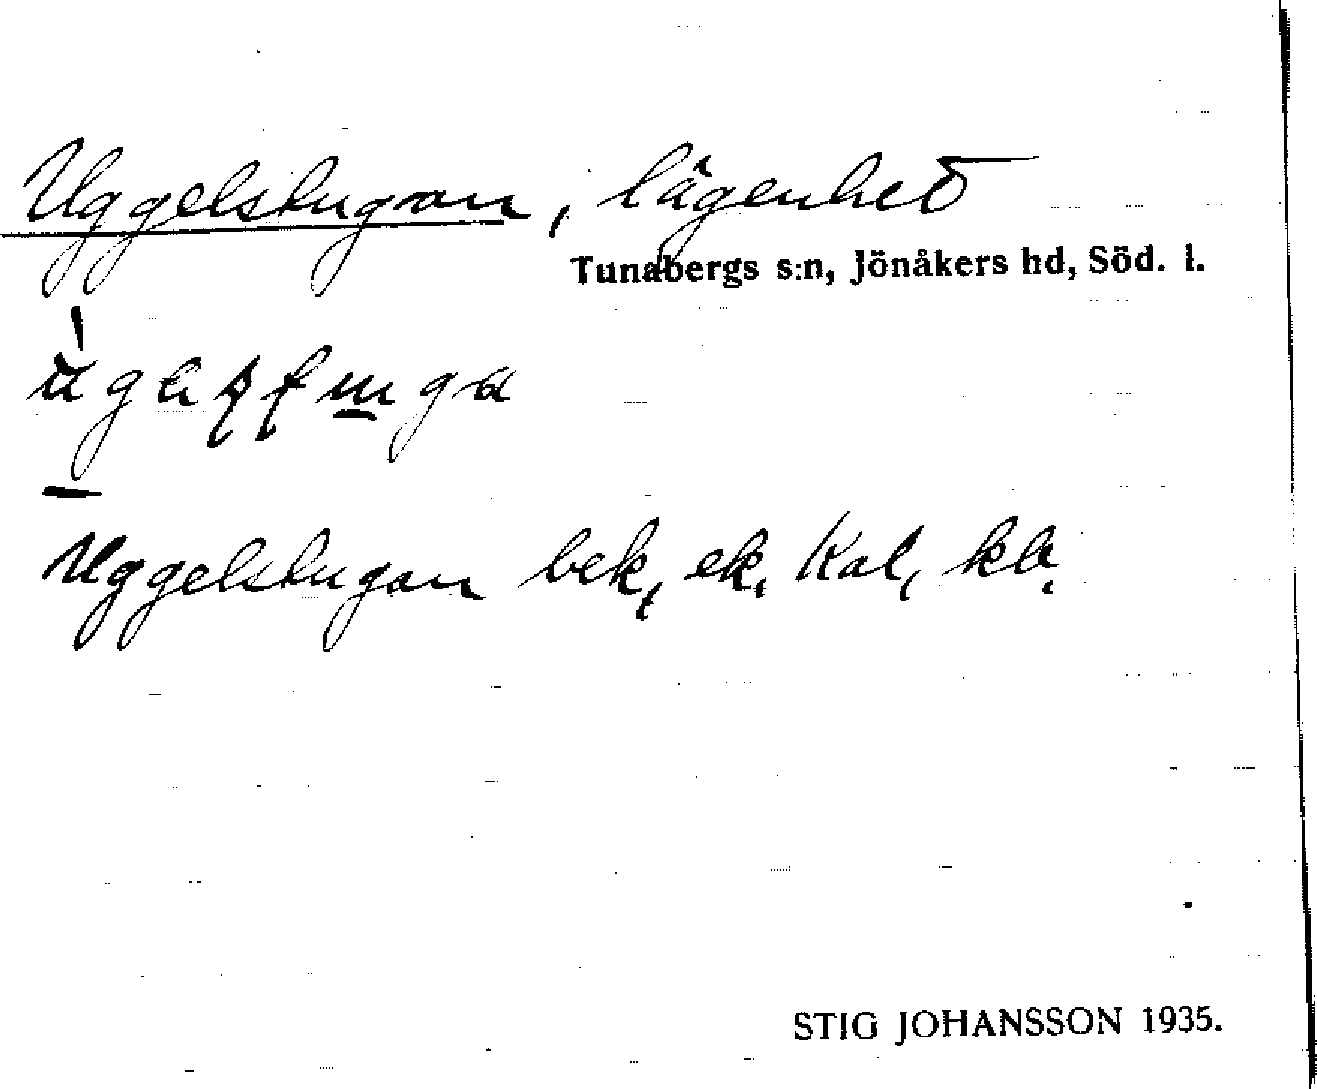 Uggelstugan, lägenhet
Tunabergs s:n, Jönåkers hd, Söd. l.
Uggelstugan bek, ek. Kal,
STIG JOHANSSON 1935.